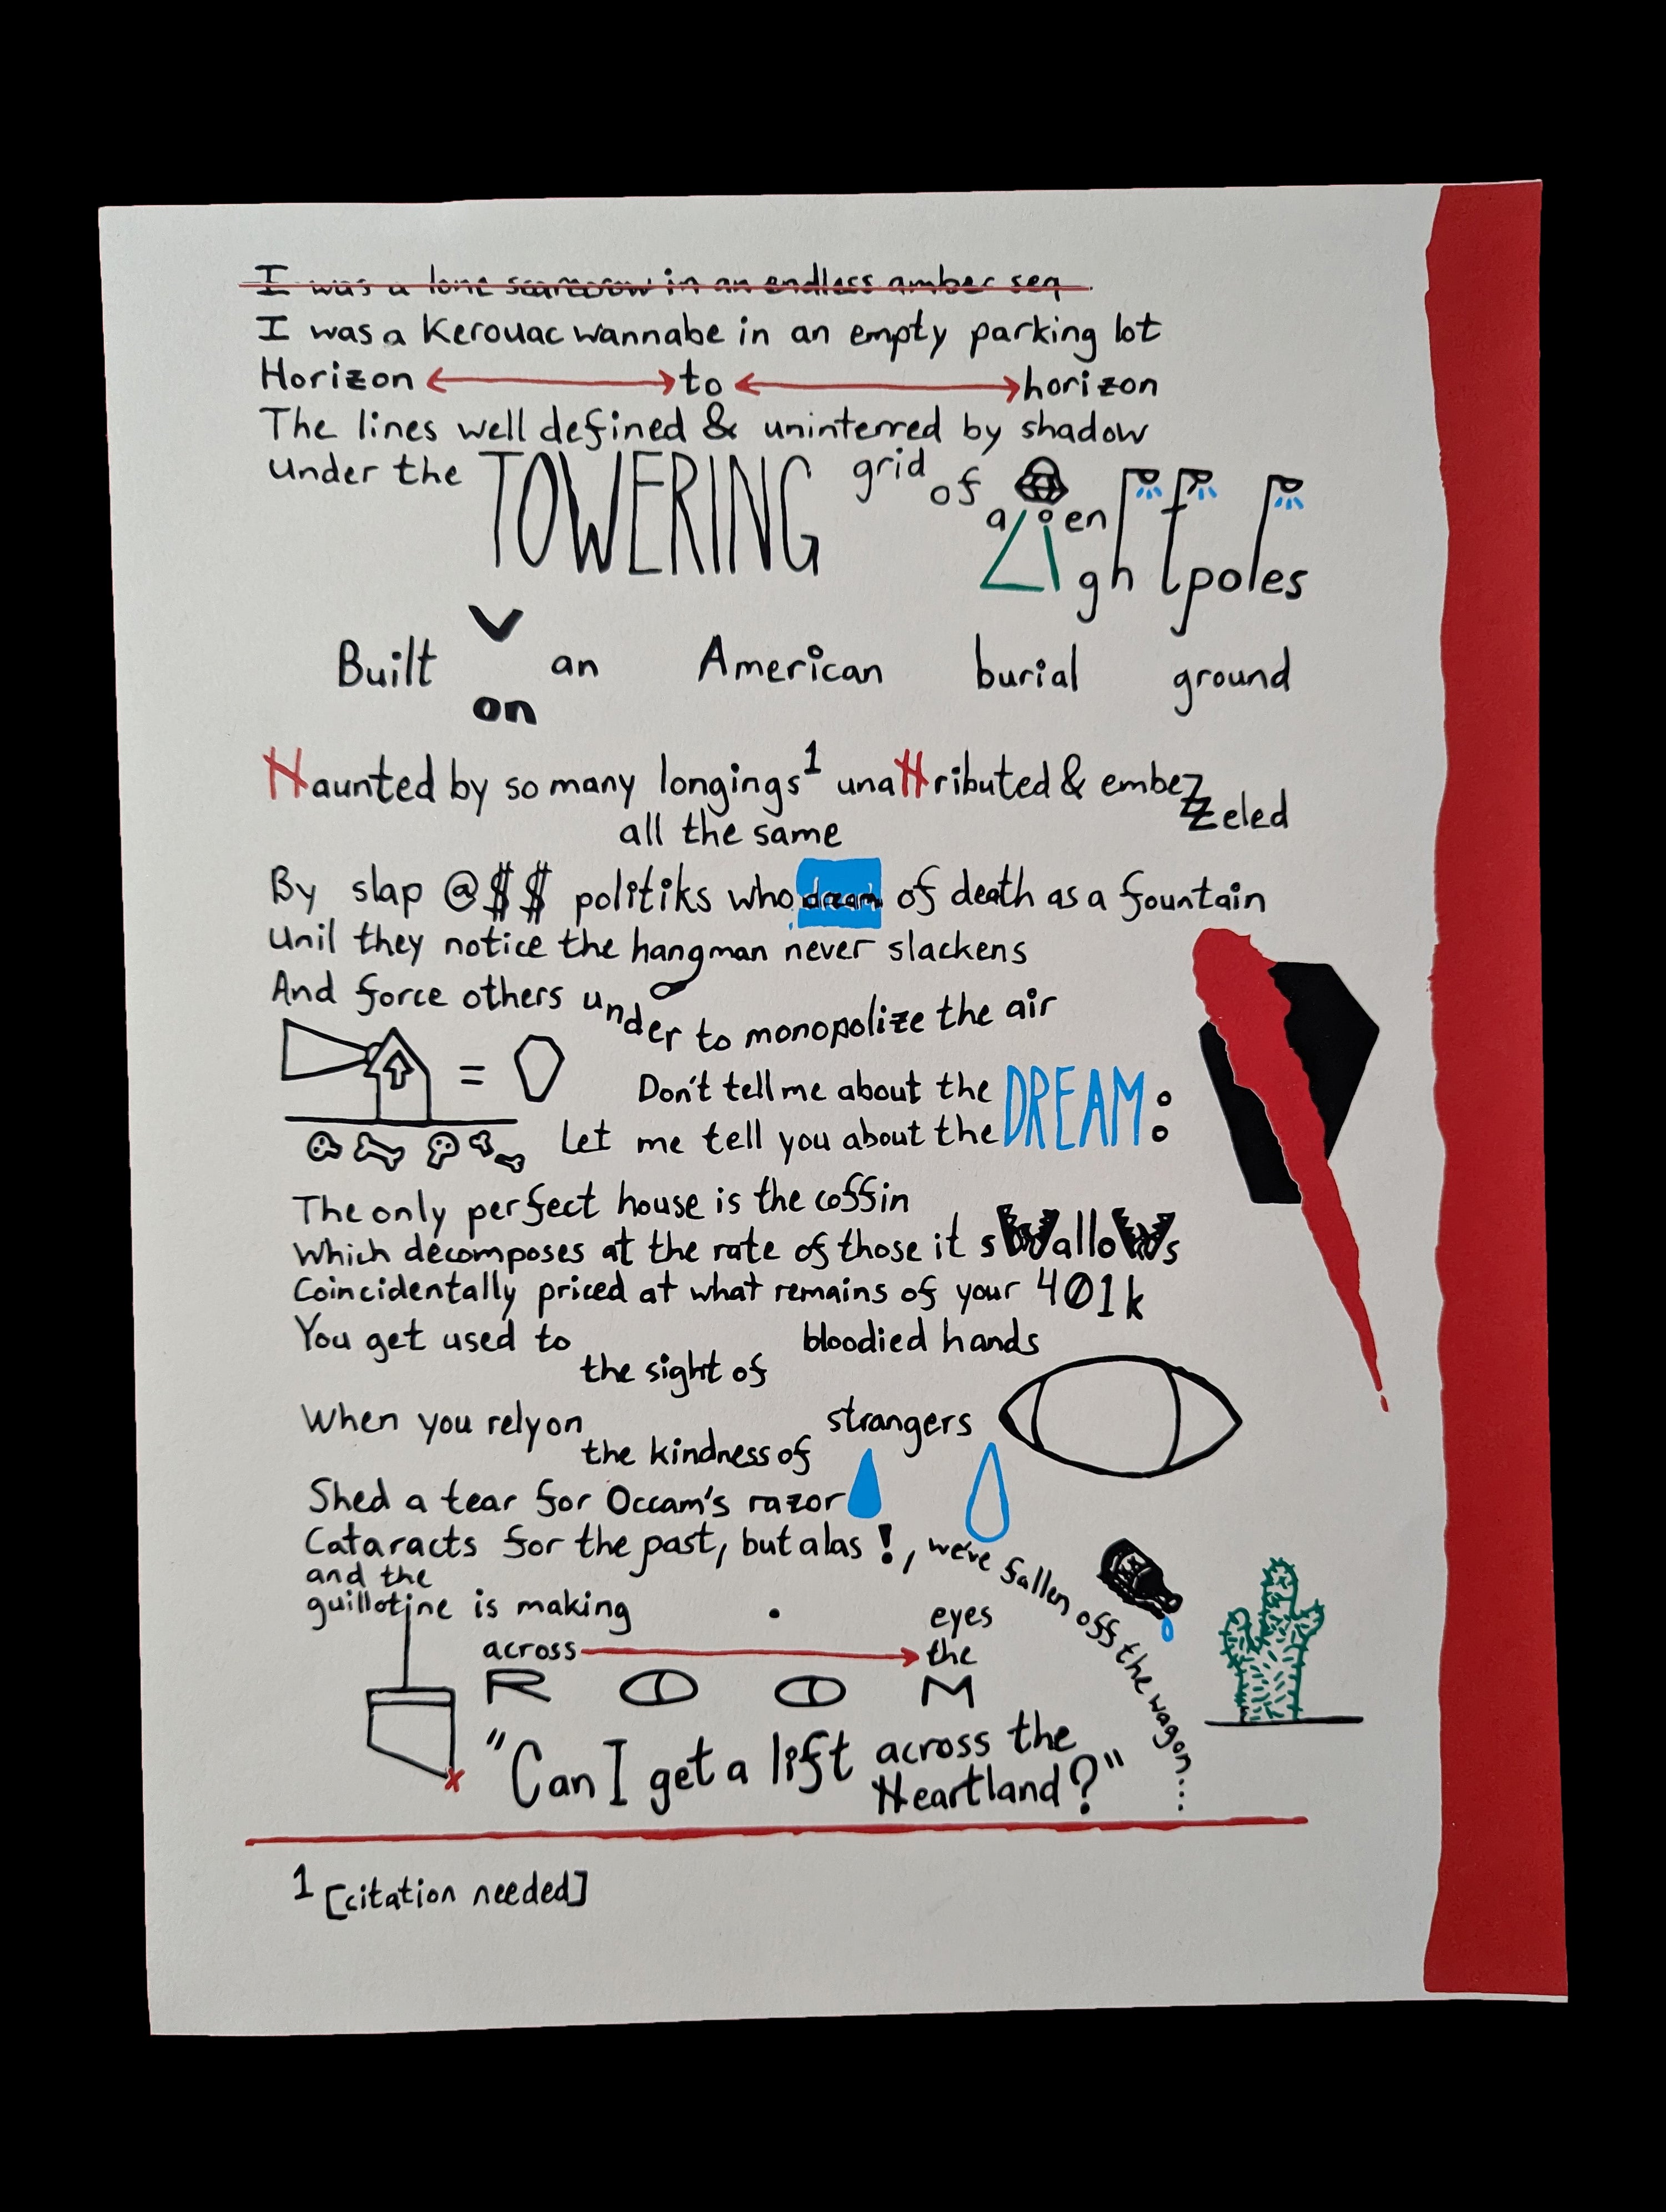 I was a lone scarecrow in an endless amber sea
I was a Kerouac wannabe in an empty parking lot
Horizon to horizon
The lines well defined & uninterred by shadow
Under the TOWERING grid of alien
Lightpoles
Built an American burial ground
on
Haunted by so many longings¹ unattributed & embezzeled
all the same
By slap @$$ politiks who dream of death as a fountain
Unil they notice the hangman never slackens
And force others under to monopolize the air
= Don't tell me about the DREAM:
Let me tell you about the
The only perfect house is the coffin
Which decomposes at the rate of those it swallows
Coincidentally priced at what remains of your 401k
You get used to the sight of bloodied hands
When you rely on the kindness of strangers
Shed a tear for Occam's razor
Cataracts for the past, but alas!, we've fallen off the wagon...
and the
guillotine is making eyes
across the
ROOM
"Can I get a lift across the
Heartland?"
1 [citation needed]